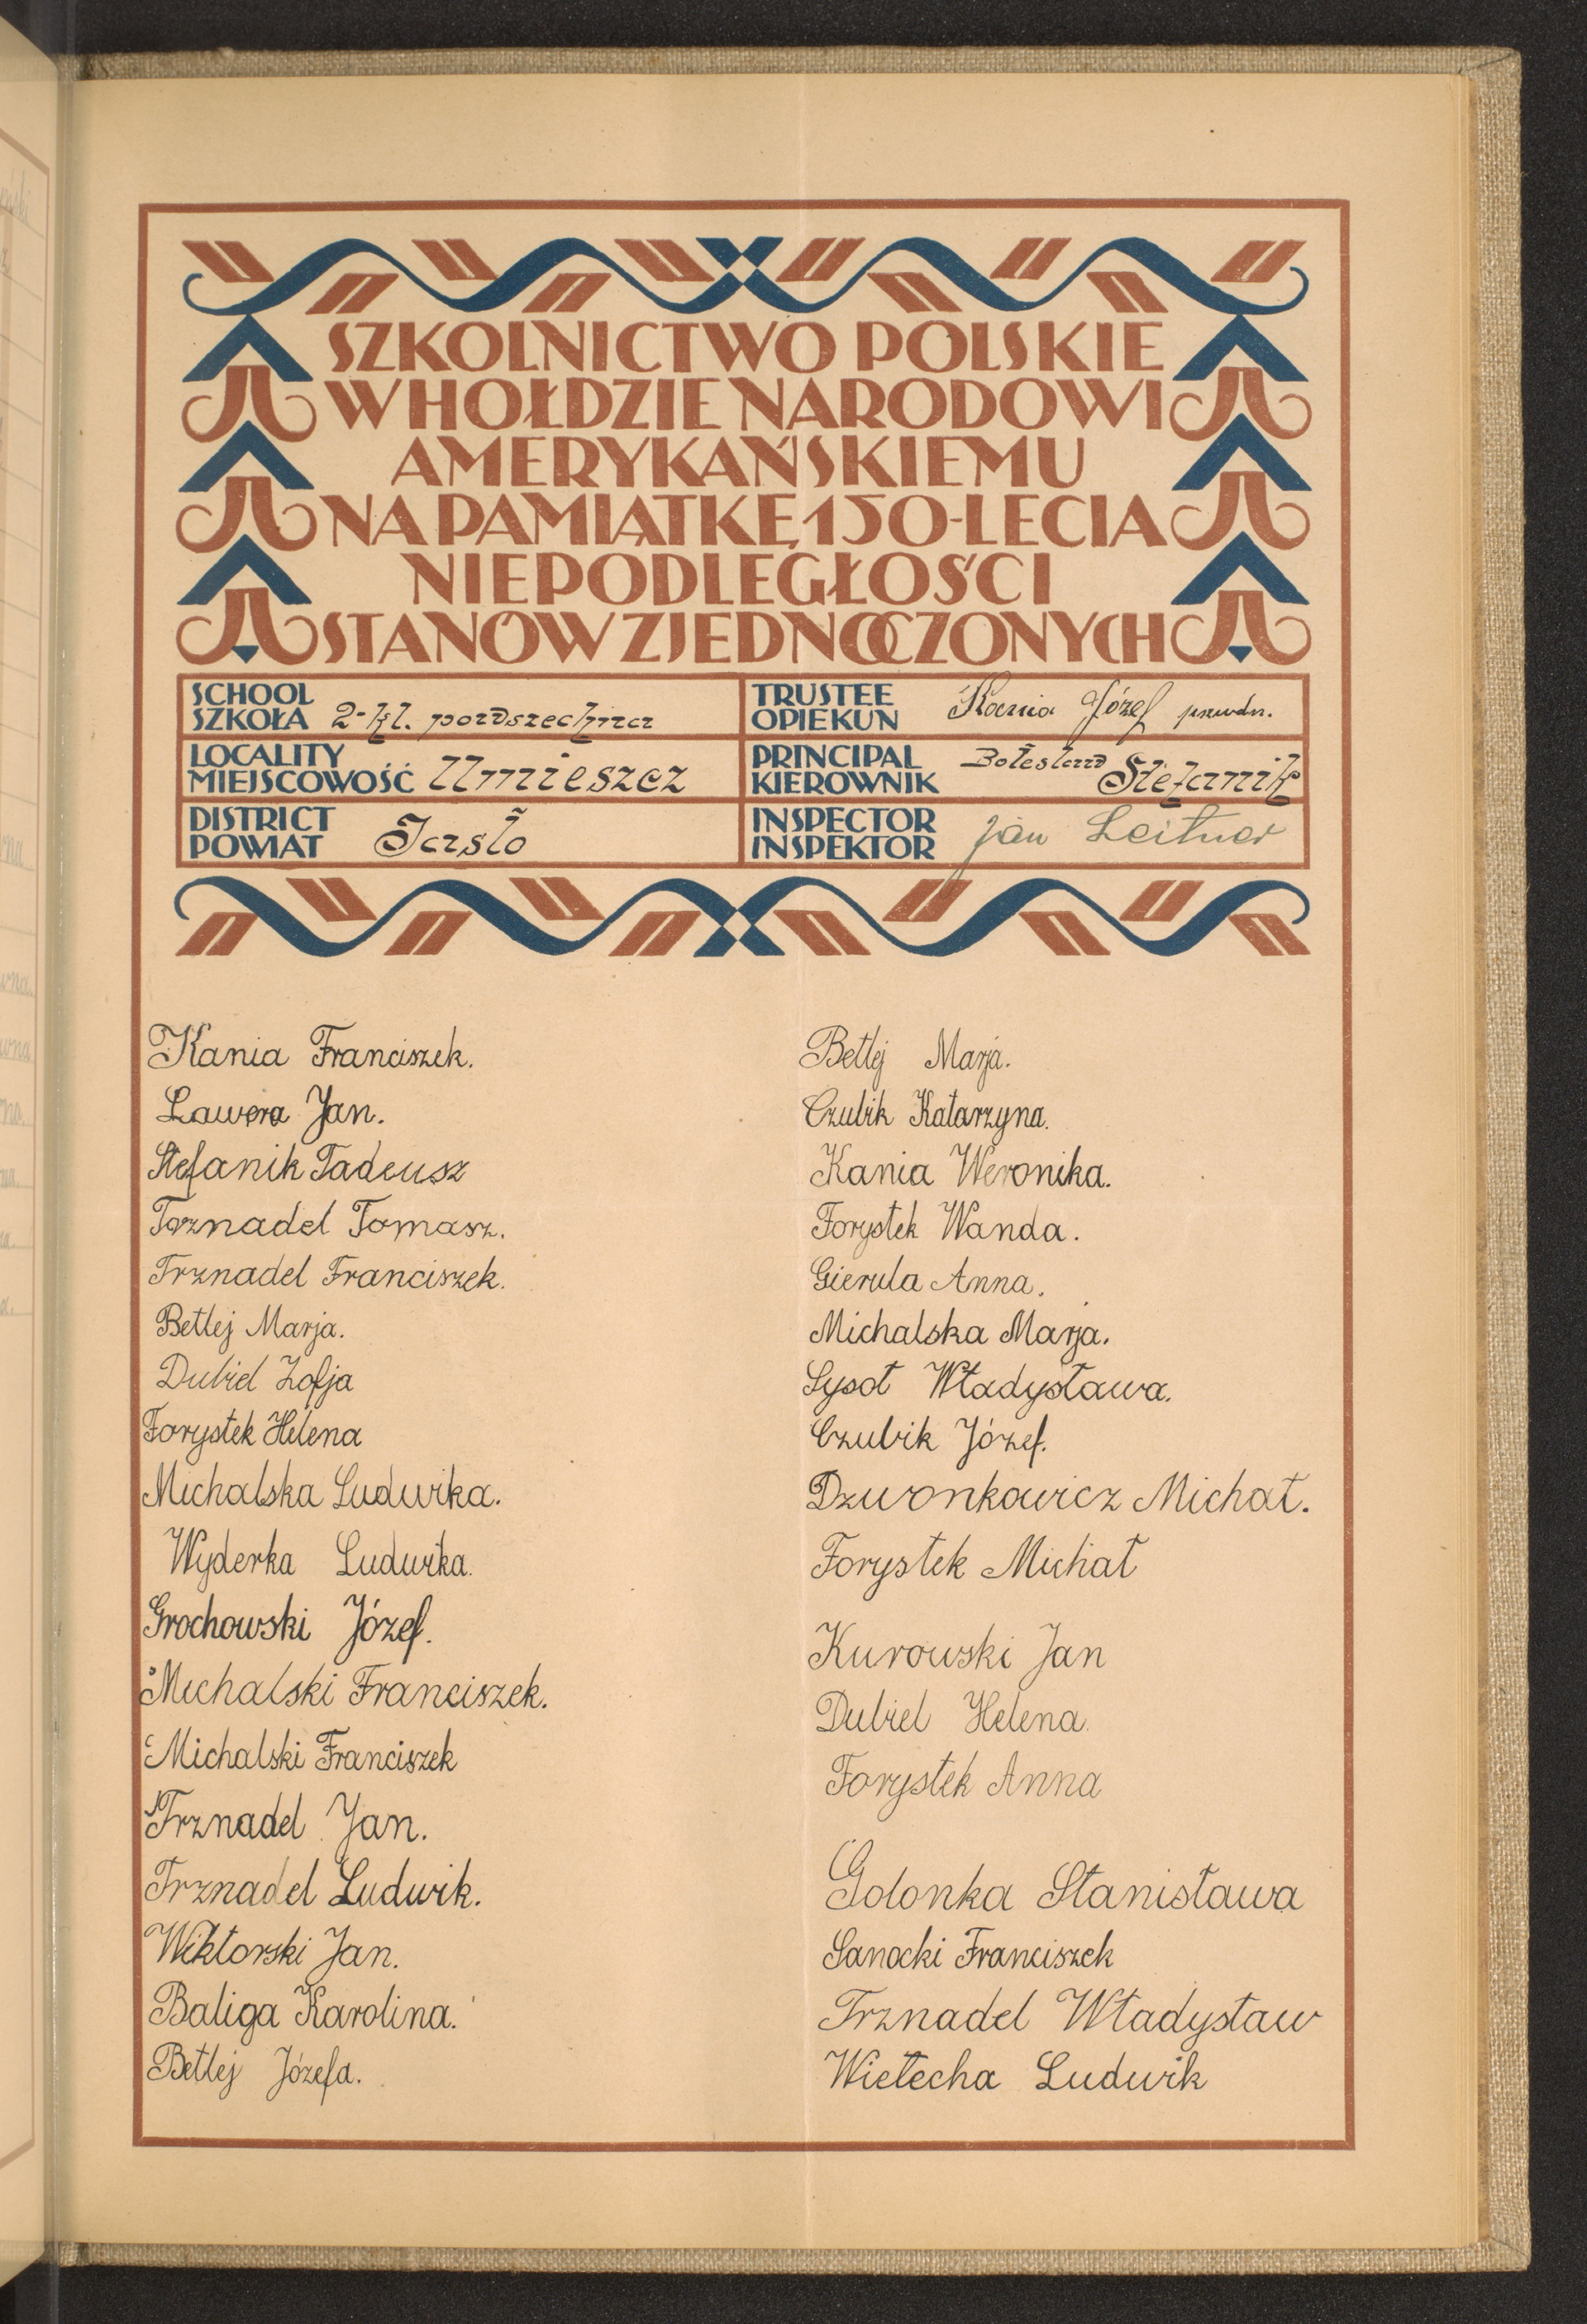 SZKOLNICTWO POLSKIE
W HOŁDZIE NARODOWI
AMERYKAŃSKIEMU
NA PAMIĄTKĘ 150-LECIA
NIEPODLEGŁOŚCI
STANÓW ZJEDNOCZONYCH
SCHOOL
SZKOŁA 2-kl. powszechna
TRUSTEE
OPIEKUN Kocnia Józef przewdn.
LOCALITY
MIEJSCOWOŚĆ Umieszcz
PRINCIPAL
KIEROWNIK Bolesław Stefanik
DISTRICT
POWIAT Jasło
INSPECTOR
INSPEKTOR Jan Leitner
Kania Franciszek.
Lawera Jan.
Stefanik Tadeusz
Trznadel Tomasz.
Trznadel Franciszek.
Betlej Marja.
Dubiel Zofja
Forystek Helena
Michalska Ludwika.
Wyderka Ludwika.
Grochowski Józef.
Michalski Franciszek.
Michalski Franciszek
Trznadel Jan.
Trznadel Ludwik.
Wiktorski Jan.
Baliga Karolina.
Betlej Józefa.
Betlej Marja.
Czubik Katarzyna.
Kania Weronika.
Forystek Wanda.
Gierula Anna.
Michalska Marja.
Sysoł Władysława.
Czubik Józef.
Dzwonkowicz Michał.
Forystek Michał
Kurowski Jan
Dubiel Helena.
Forystek Anna
Golonka Stanisława
Sanocki Franciszek
Trznadel Władysław
Wietecha Ludwik